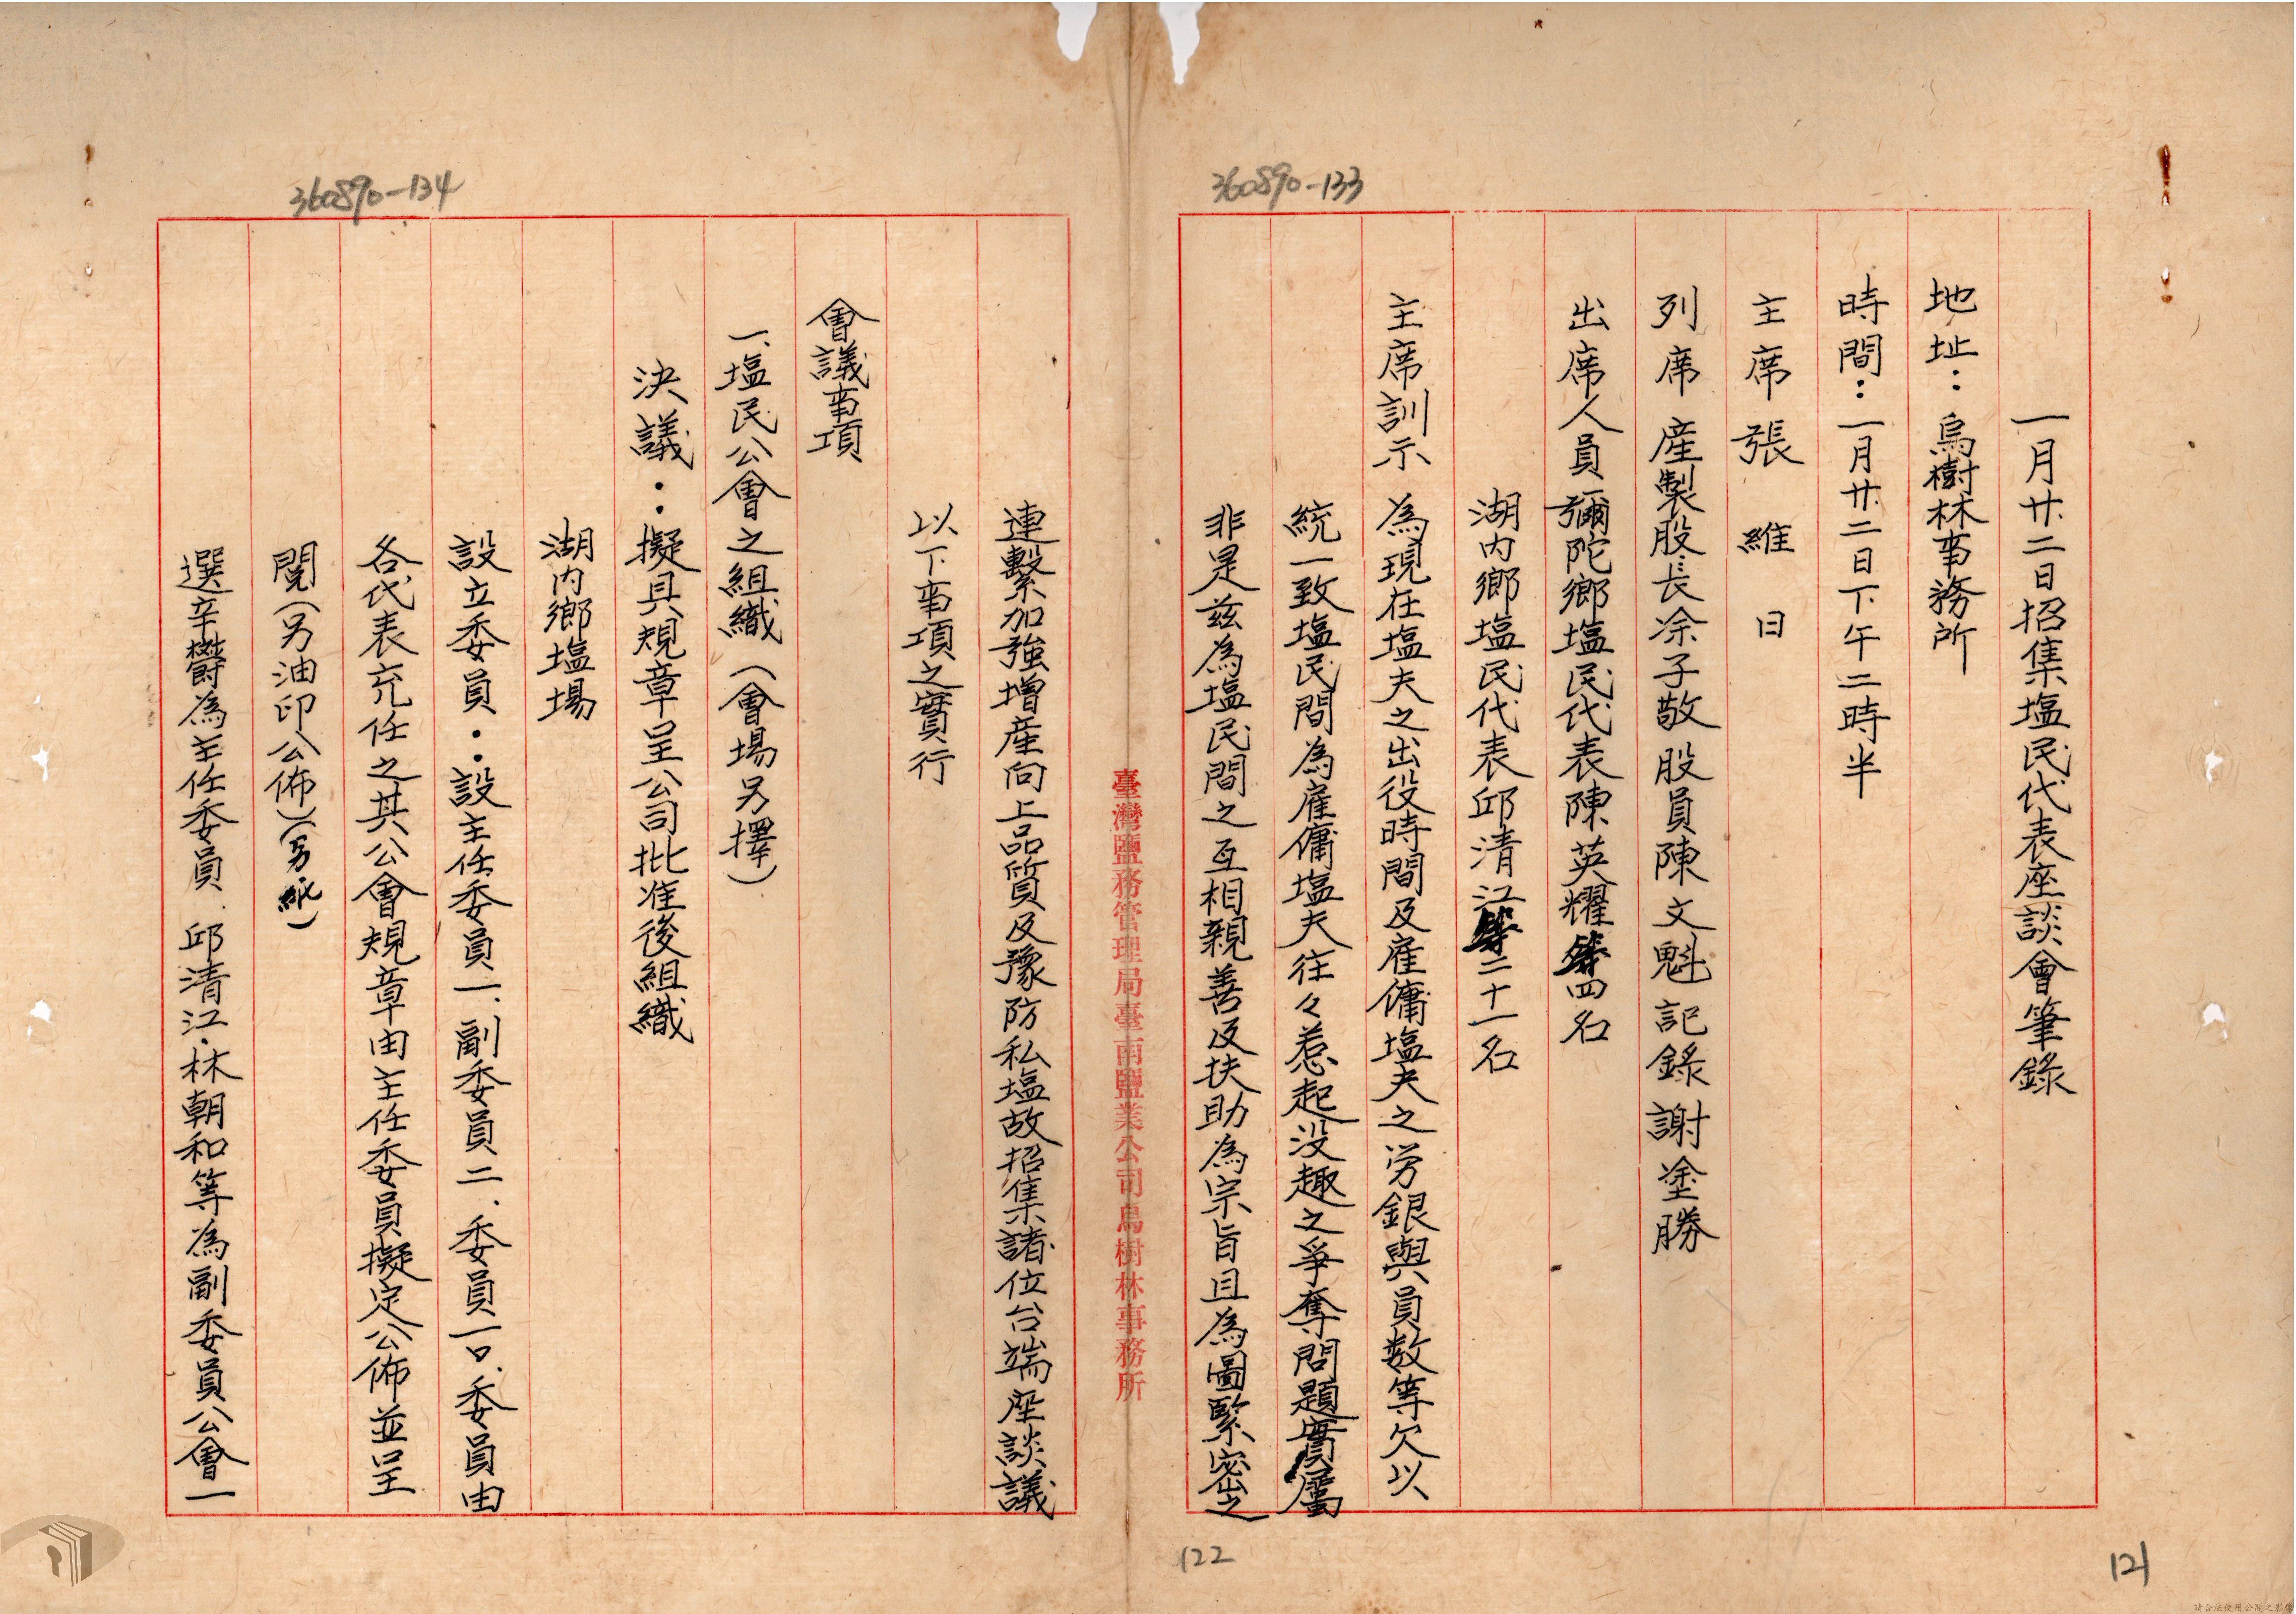 360890-133
一月廿二日招集塩民代表座談會筆錄
地址：烏樹林事務所
時間：一月廿二日下午二時半
主席 張維日
列席 產製股長涂子敬 股員陳文魁 記錄 謝塗勝
出席人員 彌陀鄉塩民代表陳英耀等四名
湖内鄉塩民代表邱清江等二十一名
主席訓示 為現在塩夫之出役時間及雇傭塩夫之労銀與員数等欠以
統一致塩民間為雇傭塩夫往々惹起没趣之爭奪問題實屬
非是兹為塩民間之互相親善及扶助為宗旨且為圖緊密之
臺灣鹽務管理局臺南鹽業公司烏樹林事務所
360890-134
連繫加強增產向上品質及豫防私塩故招集諸位台端座談議
以下事項之實行
會議事項
一、塩民公會之組織（會場另擇）
決議：擬具規章呈公司批准後組織
湖内鄉塩場
設立委員：設主任委員一、副委員二、委員一口、委員由
各代表充任之其公會規章由主任委員擬定公佈並呈
閱（另油印公佈）（另紙）
選辛欝為主任委員、邱清江、林朝和等為副委員公會一
122
121
請合法使用公開之影像